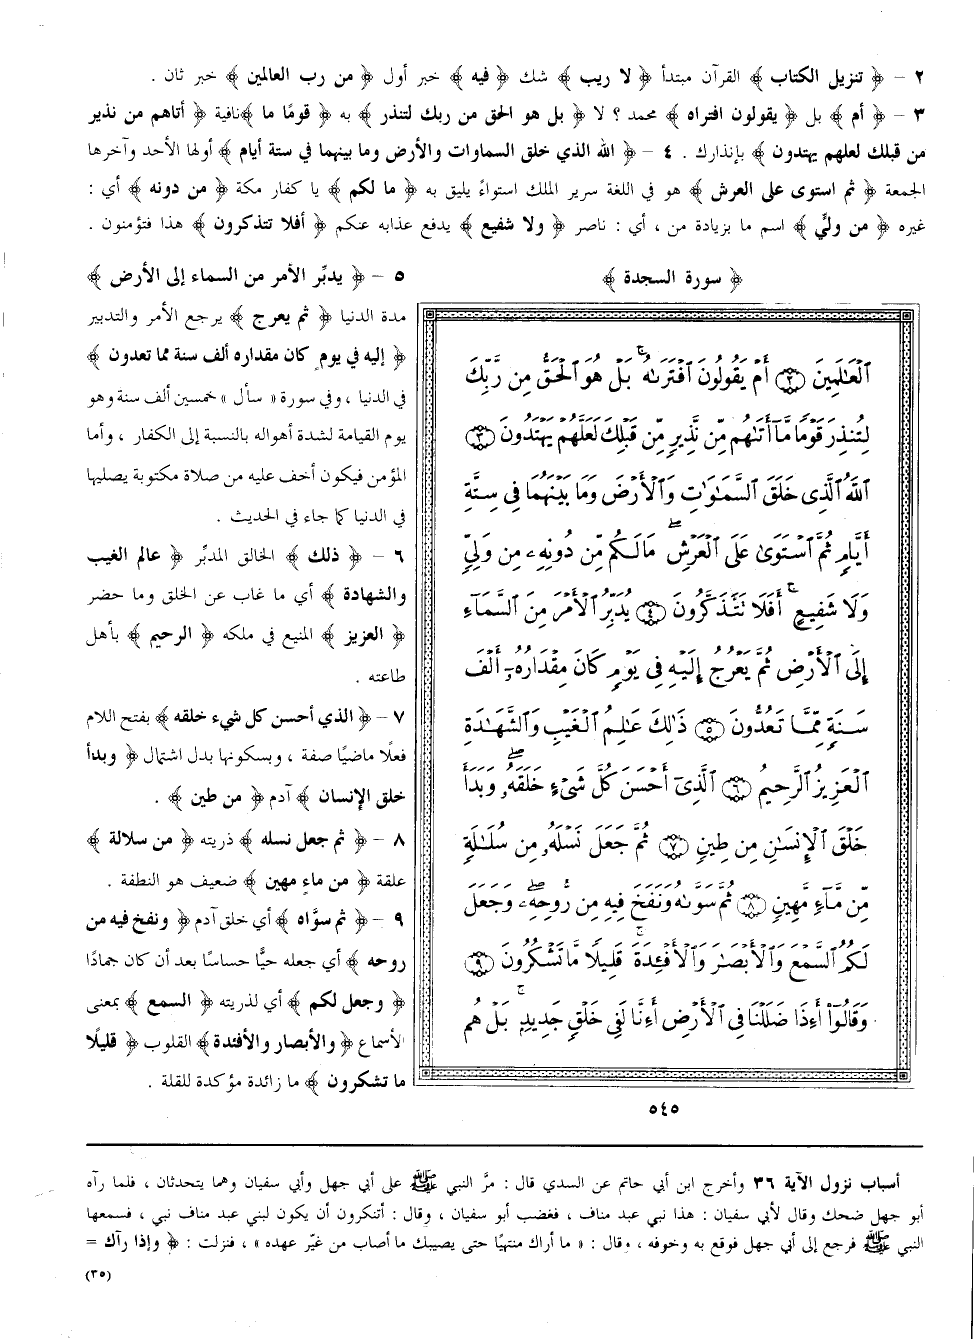 ٢ – ﴿ تنزيل الكتاب ﴾ القرآن مبتدأ ﴿ لا ريب ﴾ شك ﴿ فيه ﴾ خبر أول ﴿ من رب العالمين ﴾ خبر ثان .
٣ – ﴿ أم ﴾ بل ﴿ يقولون افتراه ﴾ محمد ؟ لا ﴿ بل هو الحق من ربك لتنذر ﴾ به ﴿ قومًا ما ﴾ نافية ﴿ أتاهم من نذير
من قبلك لعلهم يهتدون ﴾ بإنذارك . ٤ – ﴿ الله الذي خلق السماوات والأرض وما بينهما في ستة أيام ﴾ أولها الأحد وآخرها
الجمعة ﴿ ثم استوى على العرش ﴾ هو في اللغة سرير الملك استواءً يليق به ﴿ ما لكم ﴾ يا كفار مكة ﴿ من دونه ﴾ أي :
غيره ﴿ من وليٍّ ﴾ اسم ما بزيادة من ، أي : ناصر ﴿ ولا شفيع ﴾ يدفع عذابه عنكم ﴿ أفلا تتذكرون ﴾ هذا فتؤمنون .
﴿ سورة السجدة ﴾
ٱلْعَٰلَمِينَ ٢ أَمْ يَقُولُونَ ٱفْتَرَىٰهُ ۚ بَلْ هُوَ ٱلْحَقُّ مِن رَّبِّكَ
لِتُنذِرَ قَوْمًا مَّآ أَتَىٰهُم مِّن نَّذِيرٍ مِّن قَبْلِكَ لَعَلَّهُمْ يَهْتَدُونَ ٣
ٱللَّهُ ٱلَّذِى خَلَقَ ٱلسَّمَٰوَٰتِ وَٱلْأَرْضَ وَمَا بَيْنَهُمَا فِى سِتَّةِ
أَيَّامٍ ثُمَّ ٱسْتَوَىٰ عَلَى ٱلْعَرْشِ ۖ مَا لَكُم مِّن دُونِهِۦ مِن وَلِىٍّ
وَلَا شَفِيعٍ ۚ أَفَلَا تَتَذَكَّرُونَ ٤ يُدَبِّرُ ٱلْأَمْرَ مِنَ ٱلسَّمَآءِ
إِلَى ٱلْأَرْضِ ثُمَّ يَعْرُجُ إِلَيْهِ فِى يَوْمٍ كَانَ مِقْدَارُهُۥٓ أَلْفَ
سَنَةٍ مِّمَّا تَعُدُّونَ ٥ ذَٰلِكَ عَٰلِمُ ٱلْغَيْبِ وَٱلشَّهَٰدَةِ
ٱلْعَزِيزُ ٱلرَّحِيمُ ٦ ٱلَّذِىٓ أَحْسَنَ كُلَّ شَىْءٍ خَلَقَهُۥ ۖ وَبَدَأَ
خَلْقَ ٱلْإِنسَٰنِ مِن طِينٍ ٧ ثُمَّ جَعَلَ نَسْلَهُۥ مِن سُلَٰلَةٍ
مِّن مَّآءٍ مَّهِينٍ ٨ ثُمَّ سَوَّىٰهُ وَنَفَخَ فِيهِ مِن رُّوحِهِۦ ۖ وَجَعَلَ
لَكُمُ ٱلسَّمْعَ وَٱلْأَبْصَٰرَ وَٱلْأَفْـِٔدَةَ ۚ قَلِيلًا مَّا تَشْكُرُونَ ٩
وَقَالُوٓا۟ أَءِذَا ضَلَلْنَا فِى ٱلْأَرْضِ أَءِنَّا لَفِى خَلْقٍ جَدِيدٍۭ ۚ بَلْ هُم
٥٤٥
٥ – ﴿ يدبِّر الأمر من السماء إلى الأرض ﴾
مدة الدنيا ﴿ ثم يعرج ﴾ يرجع الأمر والتدبير
﴿ إليه في يوم كان مقداره ألف سنة مما تعدون ﴾
في الدنيا ، وفي سورة « سأل » خمسين ألف سنة وهو
يوم القيامة لشدة أهواله بالنسبة إلى الكفار ، وأما
المؤمن فيكون أخف عليه من صلاة مكتوبة يصليها
في الدنيا كما جاء في الحديث .
٦ – ﴿ ذلك ﴾ الخالق المدبِّر ﴿ عالم الغيب
والشهادة ﴾ أي ما غاب عن الخلق وما حضر
﴿ العزيز ﴾ المنيع في ملكه ﴿ الرحيم ﴾ بأهل
طاعته .
٧ – ﴿ الذي أحسن كل شيء خلقه ﴾ بفتح اللام
فعلًا ماضيًا صفة ، وبسكونها بدل اشتمال ﴿ وبدأ
خلق الإنسان ﴾ آدم ﴿ من طين ﴾ .
٨ – ﴿ ثم جعل نسله ﴾ ذريته ﴿ من سلالة ﴾
علقة ﴿ من ماءٍ مهين ﴾ ضعيف هو النطفة .
٩ – ﴿ ثم سوَّاه ﴾ أي خلق آدم ﴿ ونفخ فيه من
روحه ﴾ أي جعله حيًّا حساسًا بعد أن كان جمادًا
﴿ وجعل لكم ﴾ أي لذريته ﴿ السمع ﴾ بمعنى
الأسماع ﴿ والأبصار والأفئدة ﴾ القلوب ﴿ قليلًا
ما تشكرون ﴾ ما زائدة مؤكدة للقلة .
أسباب نزول الآية ٣٦ وأخرج ابن أبي حاتم عن السدي قال : مرَّ النبي ﷺ على أبي جهل وأبي سفيان وهما يتحدثان ، فلما رآه
أبو جهل ضحك وقال لأبي سفيان : هذا نبي عبد مناف ، فغضب أبو سفيان ، وقال : أتنكرون أن يكون لبني عبد مناف نبي ، فسمعها
النبي ﷺ فرجع إلى أبي جهل فوقع به وخوفه ، وقال : « ما أراك منتهيًا حتى يصيبك ما أصاب من غيّر عهده » ، فنزلت : ﴿ وإذا رآك =
(٣٥)